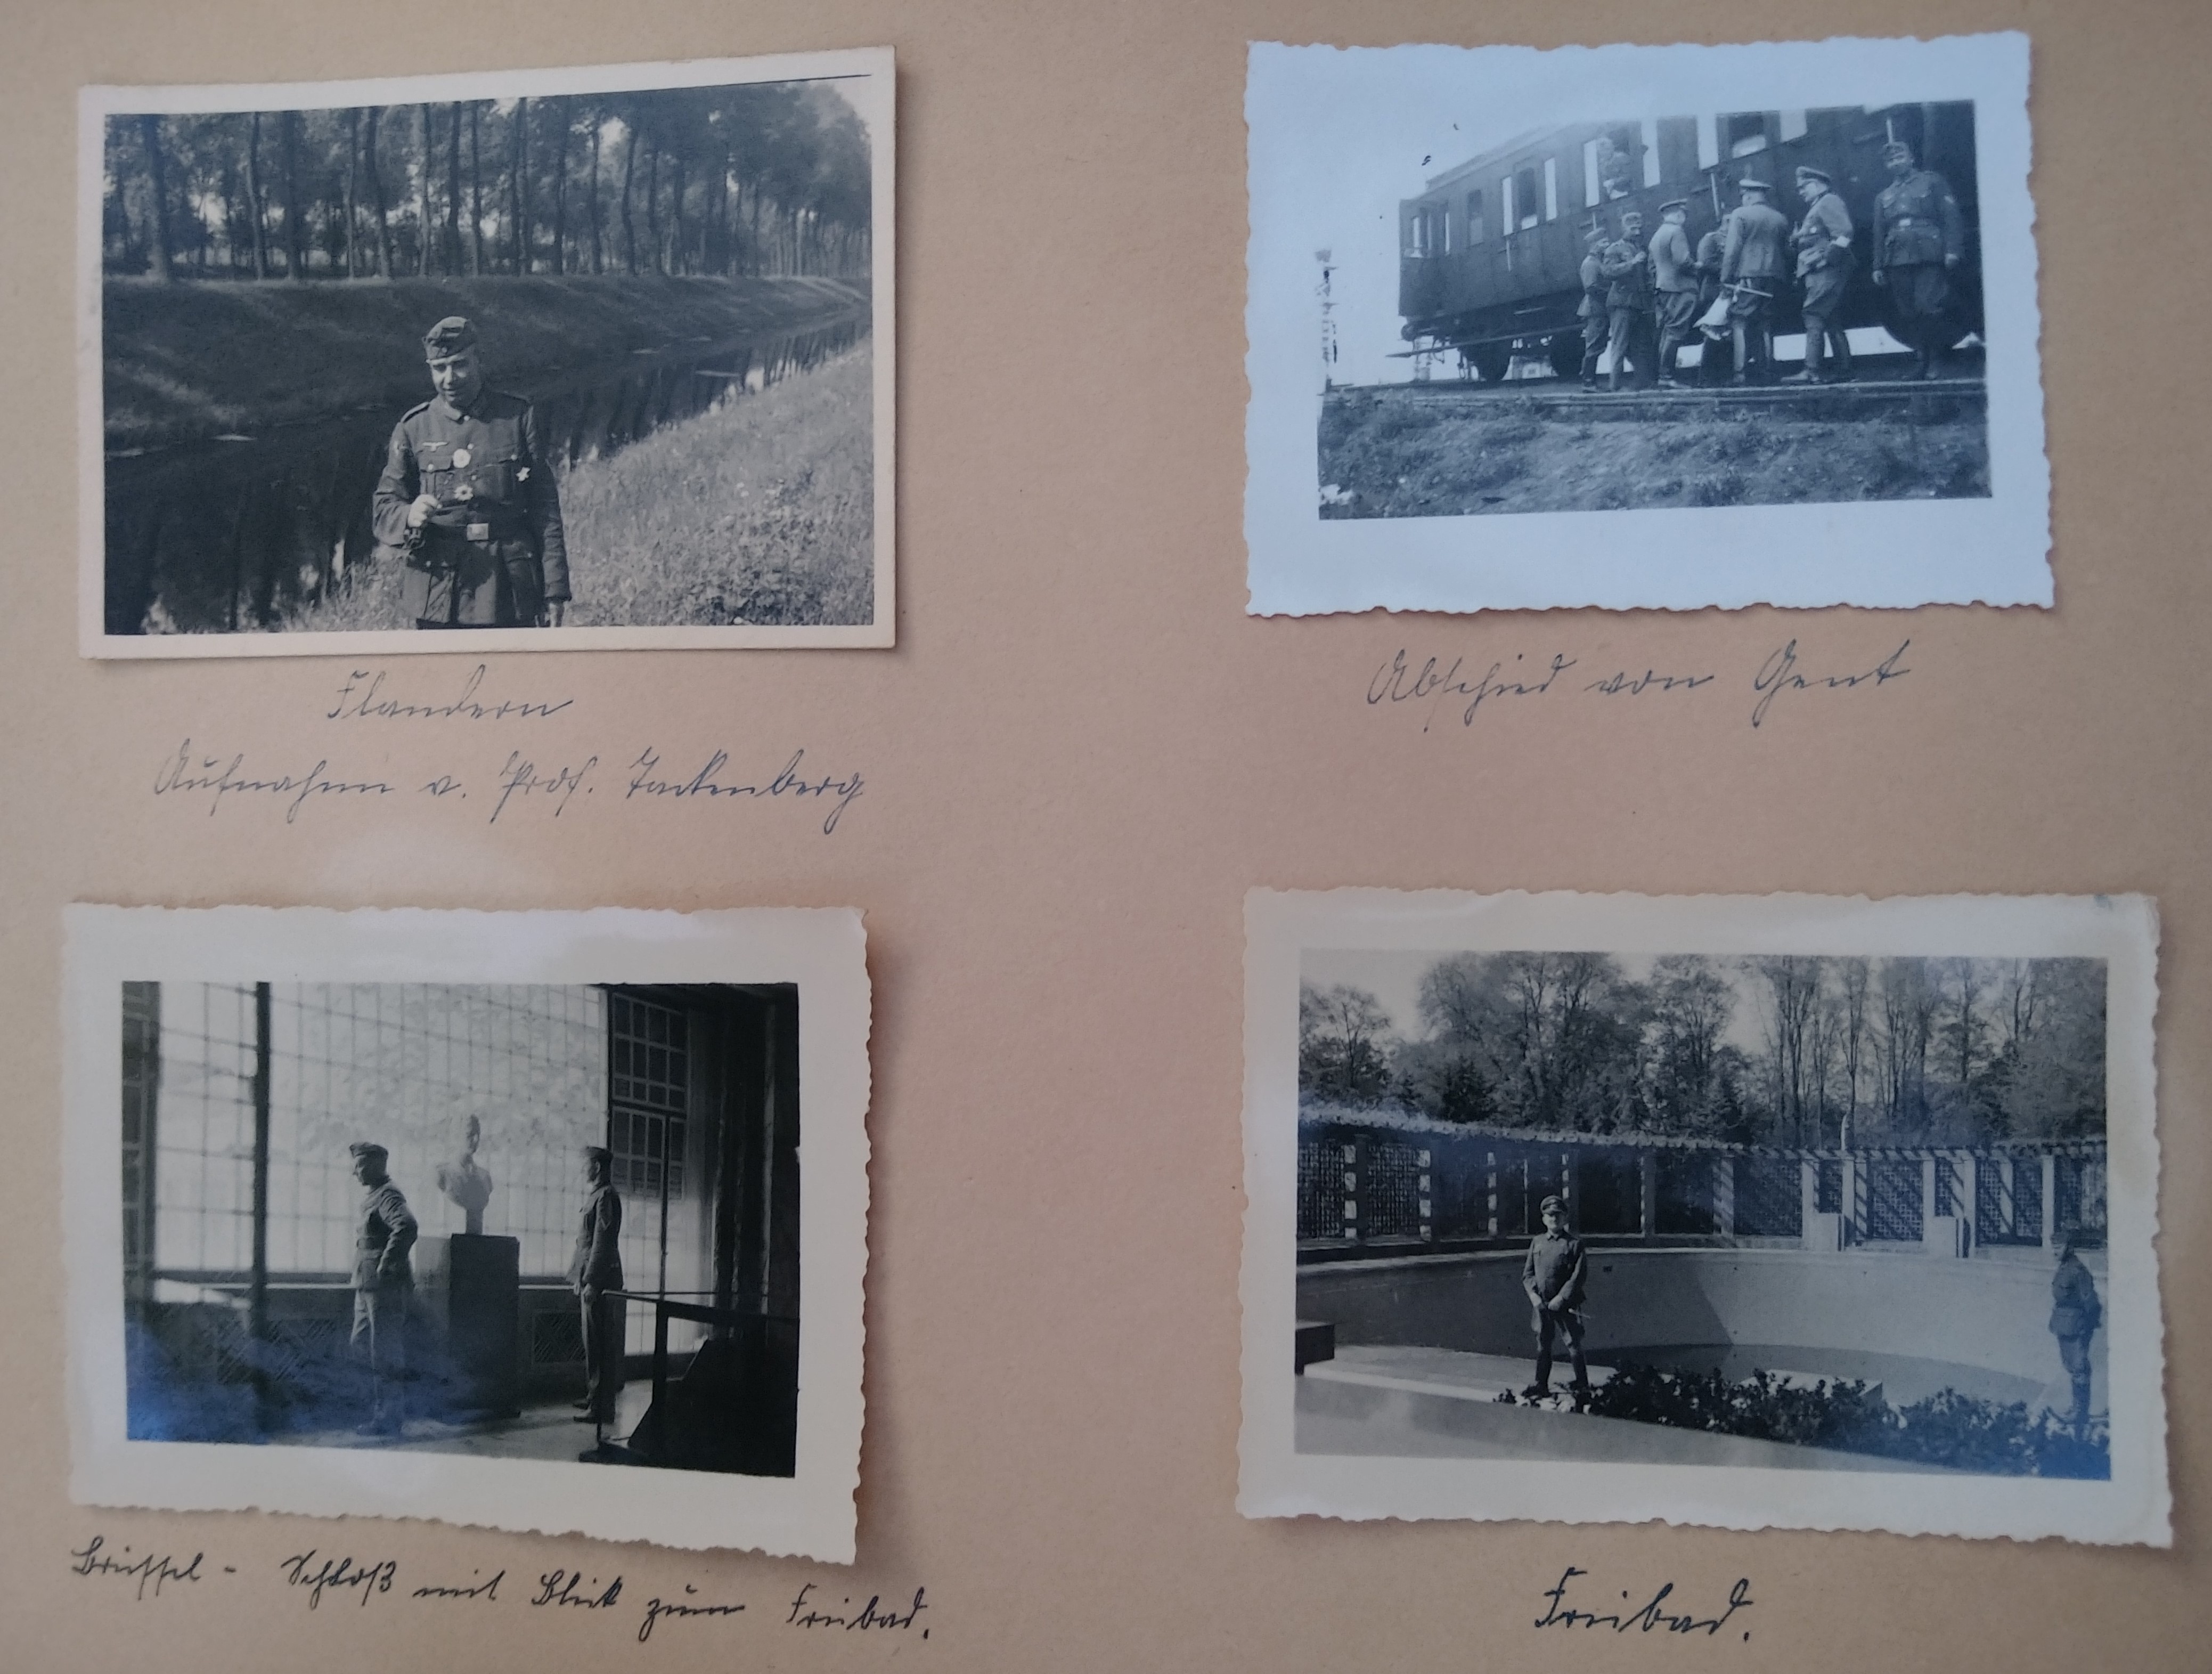 Flandern
Aufnahmen v. Prof. Tackenberg
Abschied von Gent
Brüssel - Schloß mit Blick zum Freibad.
Freibad.